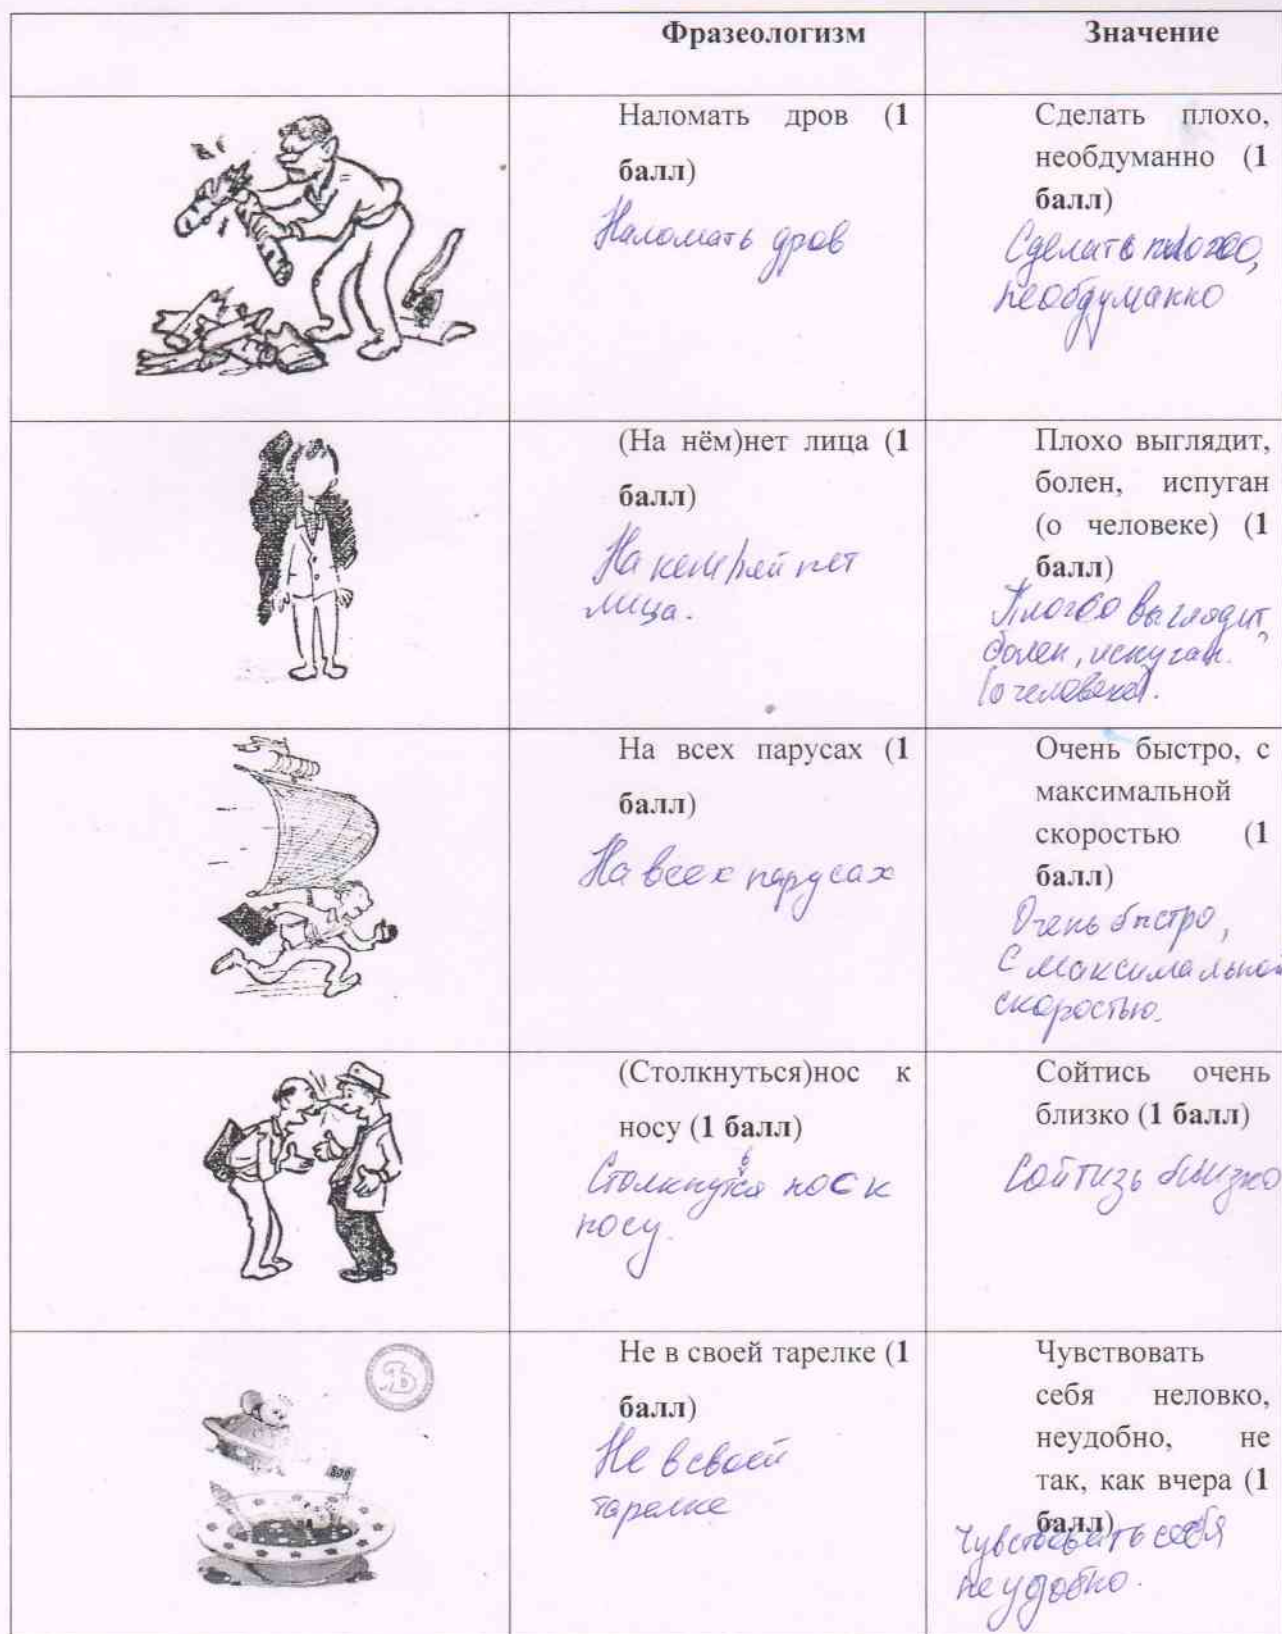 Фразеологизм
Значение
Наломать дров (1
балл)
Наломать дров
Сделать плохо,
необдуманно (1
балл)
Сделать плохо,
необдуманно
(На нём)нет лица (1
балл)
На нем/ней нет
лица.
Плохо выглядит,
болен, испуган
(о человеке) (1
балл)
Плохо выглядит,
болен, испуган.
(о человеке).
На всех парусах (1
балл)
На всех парусах
Очень быстро, с
максимальной
скоростью (1
балл)
Очень быстро,
с максимальной
скоростью.
(Столкнуться)нос к
носу (1 балл)
Столкнуться нос к
носу.
Сойтись очень
близко (1 балл)
Сойтизь близко
Не в своей тарелке (1
балл)
Не в своей
тарелке
Чувствовать
себя неловко,
неудобно, не
так, как вчера (1
балл)
Чувствовать себя
неудобно.